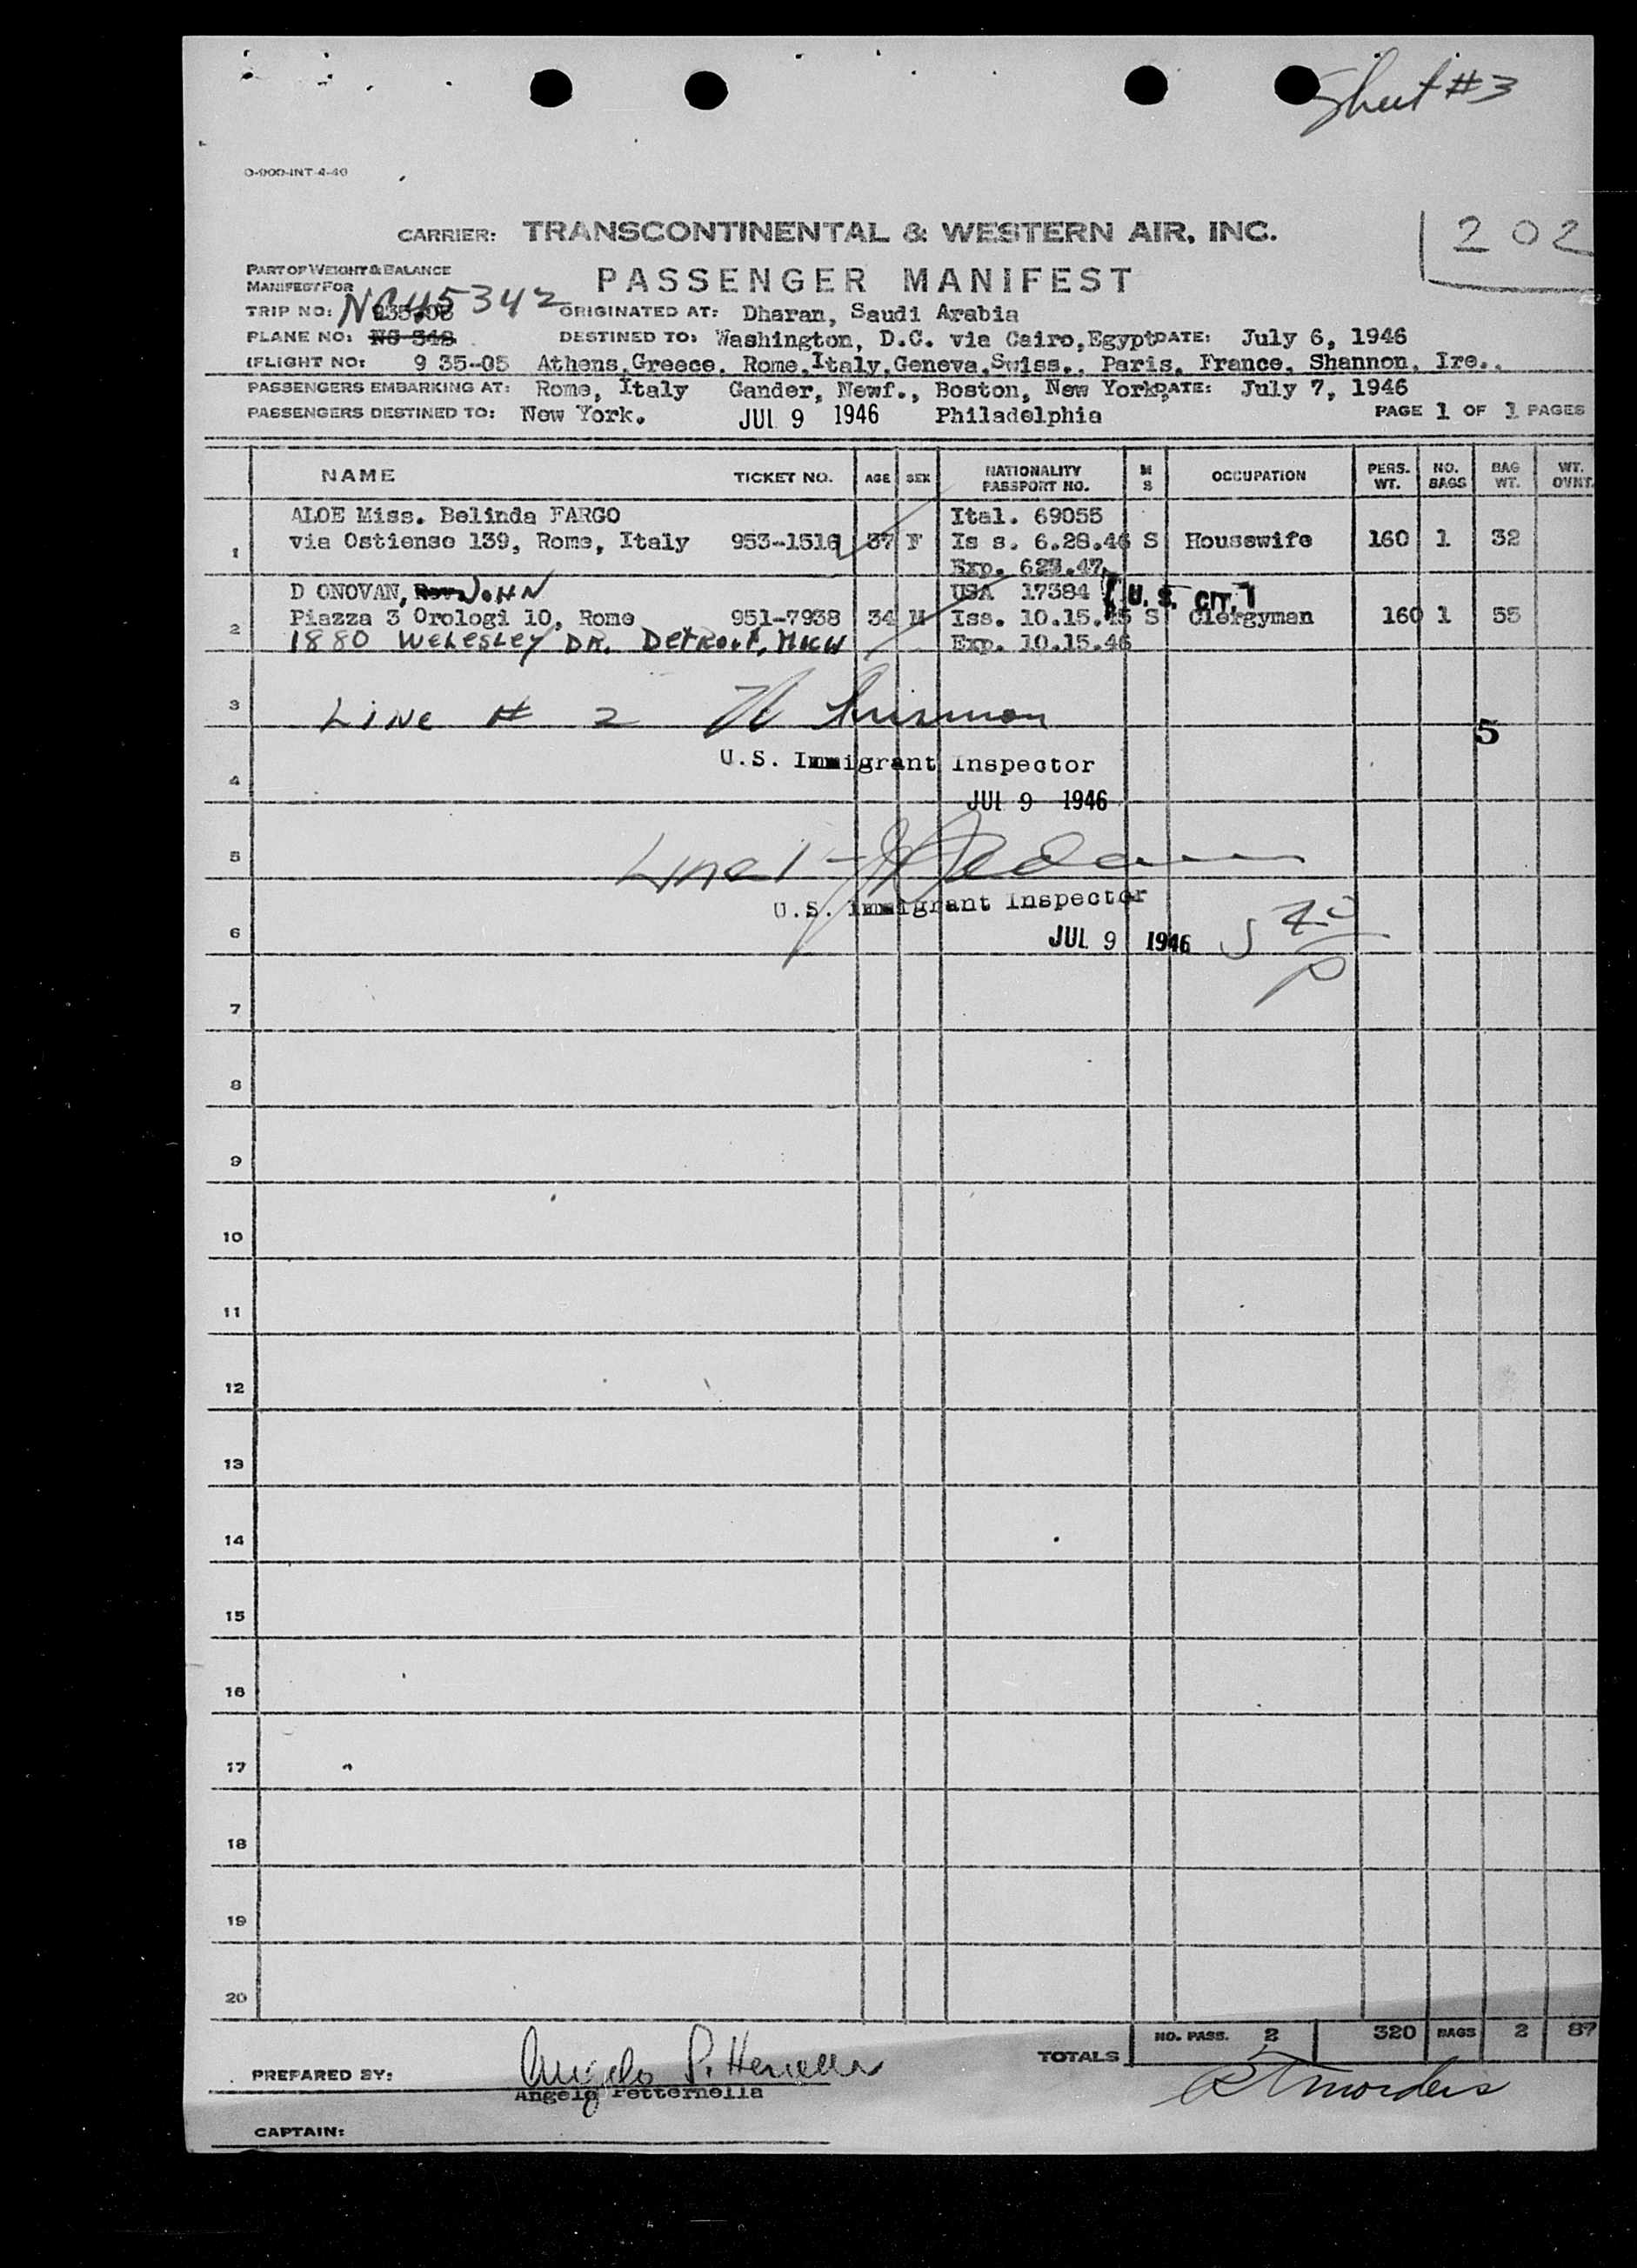 Sheet #3
O-900-INT-4-46
CARRIER: TRANSCONTINENTAL & WESTERN AIR, INC.
202
PART OF WEIGHT & BALANCE
MANIFEST FOR
PASSENGER MANIFEST
TRIP NO: 45342 ORIGINATED AT: Dharan, Saudi Arabia
PLANE NO: NC 342 DESTINED TO: Washington, D.C. via Cairo,Egypt DATE: July 6, 1946
(FLIGHT NO: 9 35-05 Athens,Greece, Rome,Italy,Geneva,Swiss., Paris, France, Shannon, Ire.,
PASSENGERS EMBARKING AT: Rome, Italy Gander, Newf., Boston, New York, DATE: July 7, 1946
PASSENGERS DESTINED TO: New York. JUL 9 1946 Philadelphia PAGE 1 OF 1 PAGES
NAME TICKET NO. AGE SEX NATIONALITY PASSPORT NO. M S OCCUPATION PERS. WT. NO. BAGS BAG WT. WT. OVNT.
ALOE Miss. Belinda FARGO Ital. 69055
1 via Ostiense 139, Rome, Italy 953-1516 37 F Is s. 6.28.46 S Housewife 160 1 32
Exp. 627.47
D ONOVAN, Rev. JOHN USA 17384 U. S. CIT.
2 Piazza 3 Orologi 10, Rome 951-7938 34 M Iss. 10.15.45 S Clergyman 160 1 55
1880 WELESLEY DR. DETROIT, MICH Exp. 10.15.46
3 LINE # 2
5
U.S. Immigrant Inspector
4
JUL 9 1946
5 Line 1 -
U.S. Immigrant Inspector
6 JUL 9 1946
7
8
9
10
11
12
13
14
15
16
17
18
19
20
NO. PASS. 2 320 BAGS 2 87
TOTALS
PREPARED BY: Angelo Petternella
Angelo Petternella
CAPTAIN: